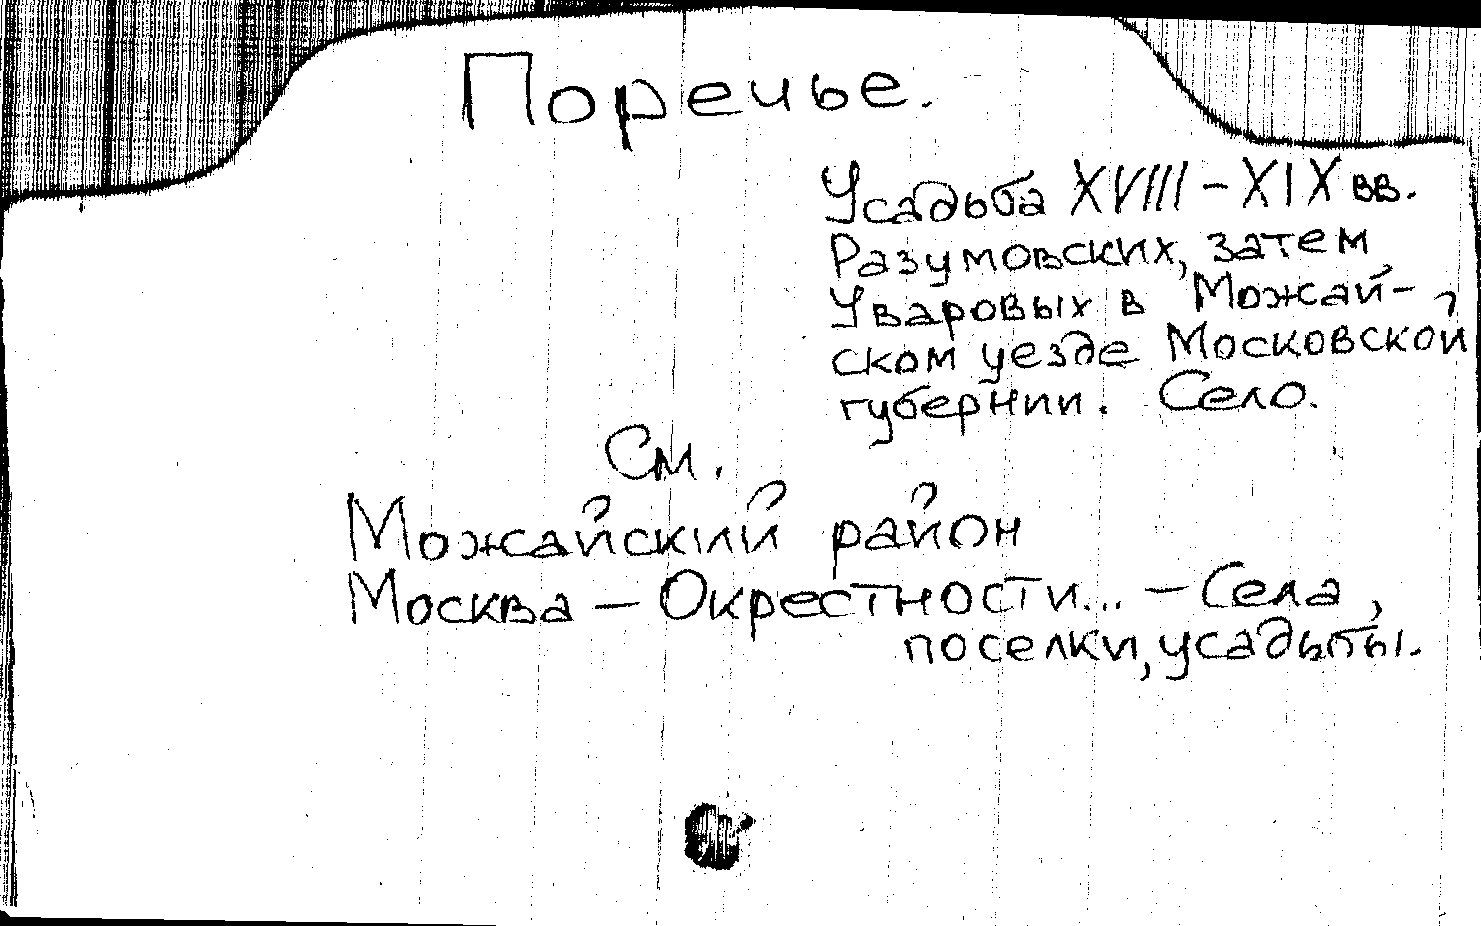 Поречье.
Усадьба XVIII – XIX вв.
Разумовских, затем
Уваровых в Можай-
ском уезде Московской
губернии. Село.
См.
Можайский район
Москва – Окрестности... – Села,
поселки, усадьбы.